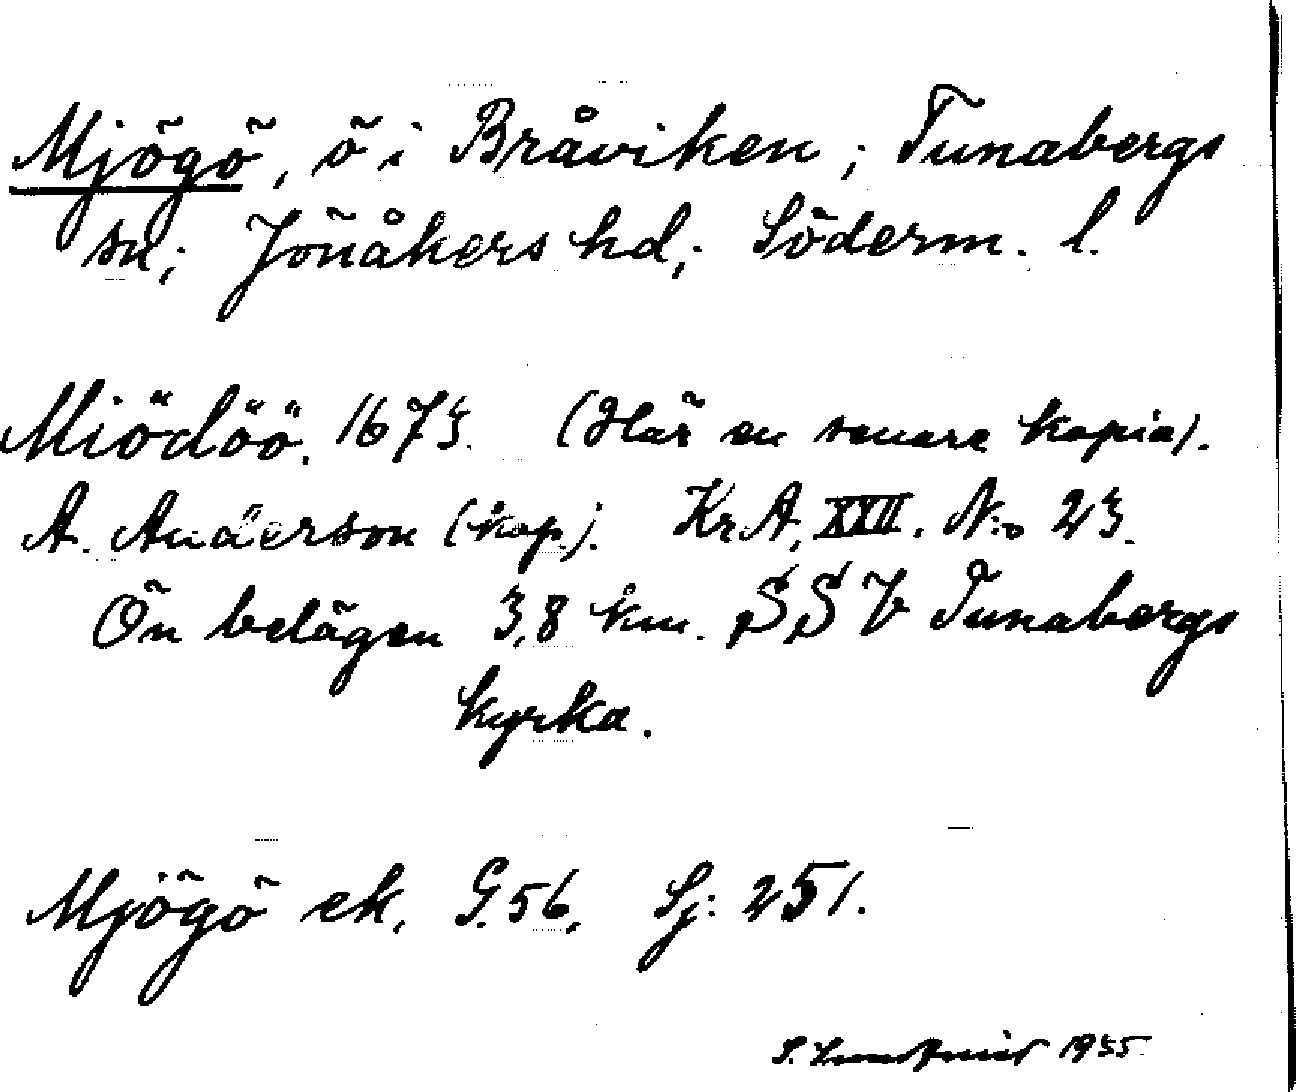 Mjögö, ö i Bråviken; Tunabergs
sn; Jönåkers hd; Söderm. l.
Miödöö. 1673. (Här en senare kopia).
A. Anderson (kop.). Kr.A. XXII. N:o 23.
Ön belägen 3,8 km. SSV Tunabergs
kyrka.
Mjögö ek. G.56. Sj: 251.
S. 1955